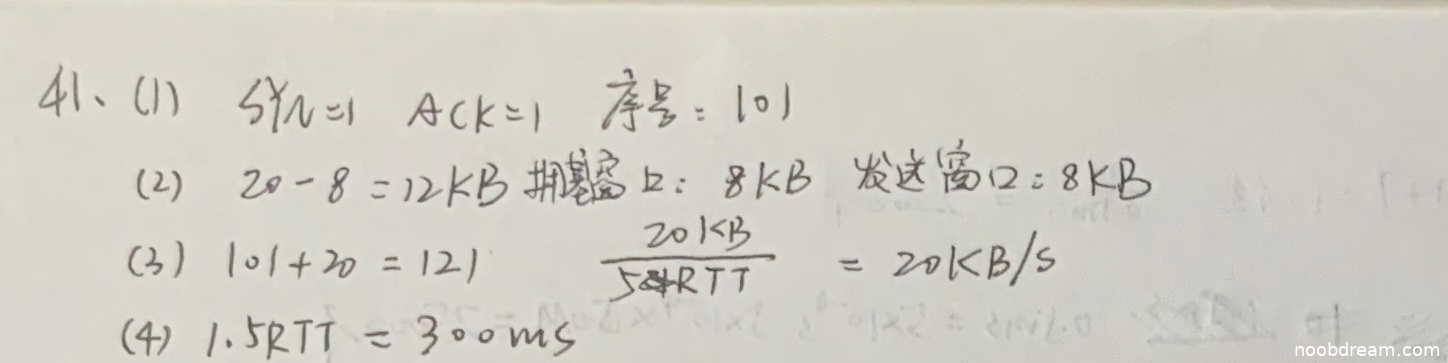 41、(1) SYN=1 ACK=1 序号:101
(2) 20-8=12KB 拥塞窗口:8KB 发送窗口:8KB
(3) 101+20=121 20KB/5RTT = 20KB/s
(4) 1.5RTT = 300ms
noobdream.com